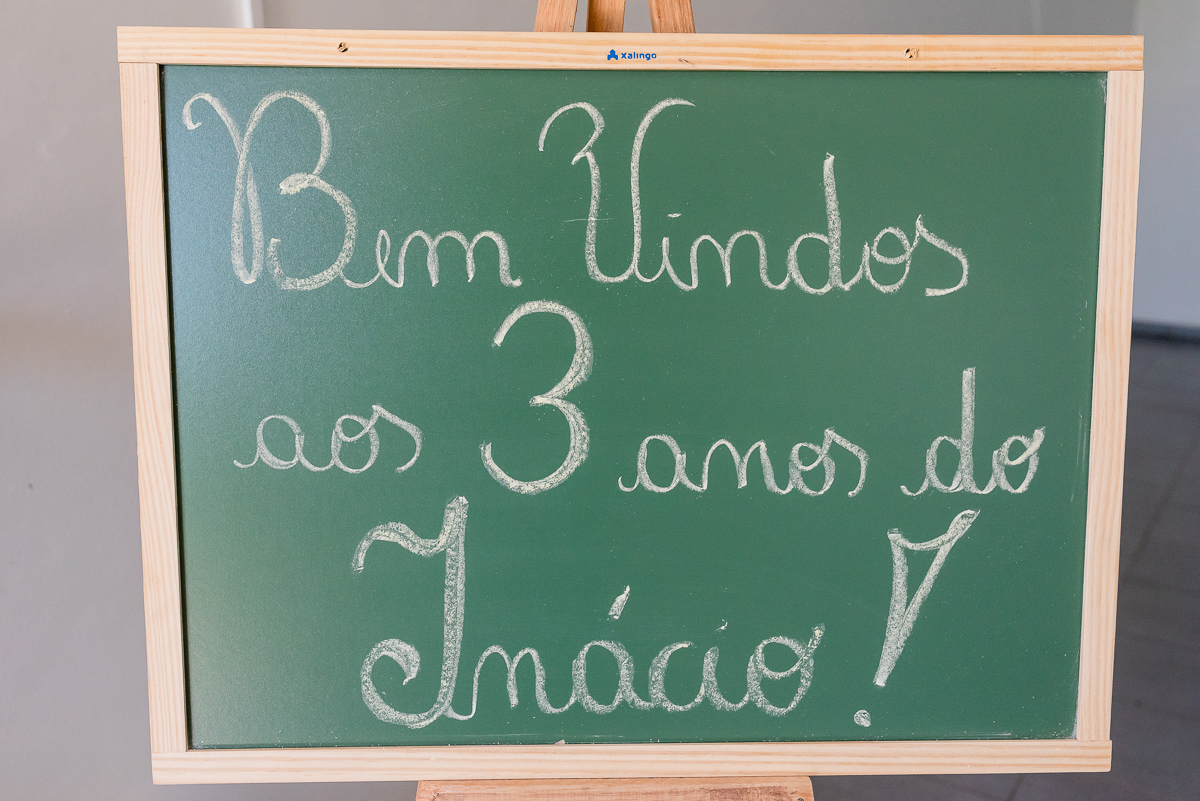 xalingo
Bem Vindos
aos 3 anos do
Inácio!